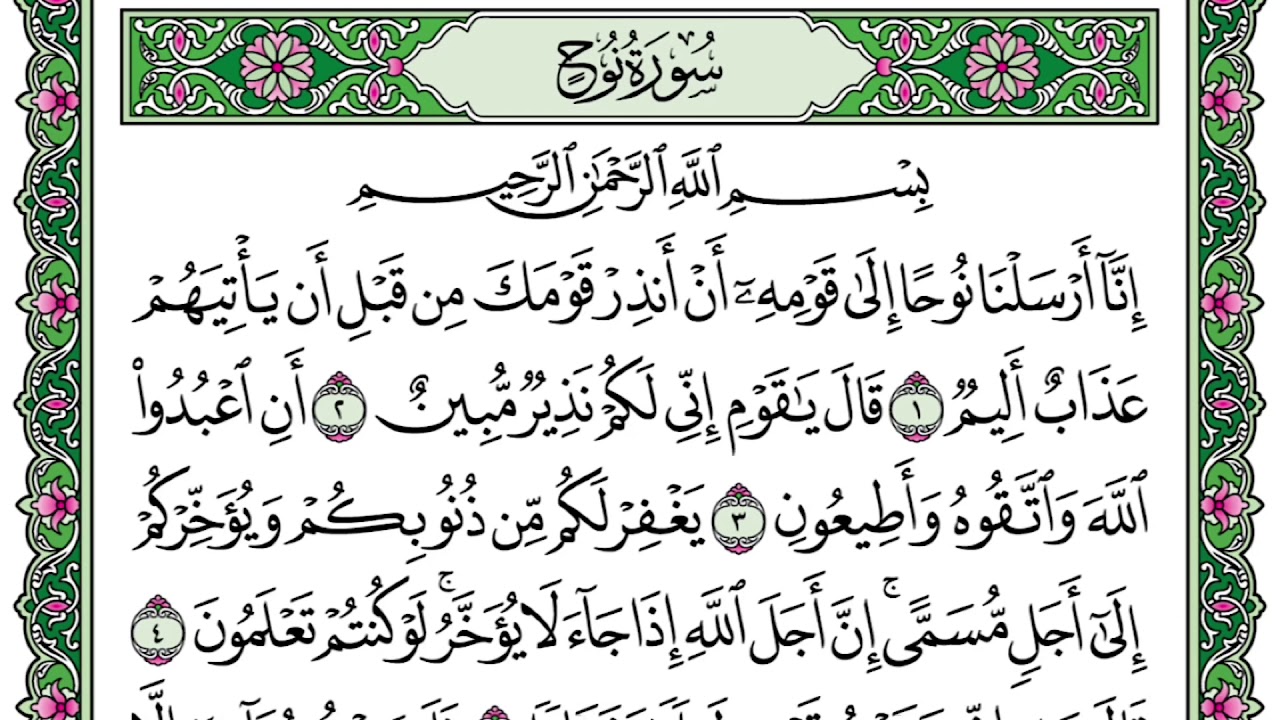 سُورَةُ نُوحٍ
بِسْمِ ٱللَّهِ ٱلرَّحْمَٰنِ ٱلرَّحِيمِ
إِنَّآ أَرْسَلْنَا نُوحًا إِلَىٰ قَوْمِهِۦٓ أَنْ أَنذِرْ قَوْمَكَ مِن قَبْلِ أَن يَأْتِيَهُمْ
عَذَابٌ أَلِيمٌ ١ قَالَ يَٰقَوْمِ إِنِّى لَكُمْ نَذِيرٌ مُّبِينٌ ٢ أَنِ ٱعْبُدُوا۟
ٱللَّهَ وَٱتَّقُوهُ وَأَطِيعُونِ ٣ يَغْفِرْ لَكُم مِّن ذُنُوبِكُمْ وَيُؤَخِّرْكُمْ
إِلَىٰٓ أَجَلٍ مُّسَمًّى ۚ إِنَّ أَجَلَ ٱللَّهِ إِذَا جَآءَ لَا يُؤَخَّرُ ۚ لَوْ كُنتُمْ تَعْلَمُونَ ٤